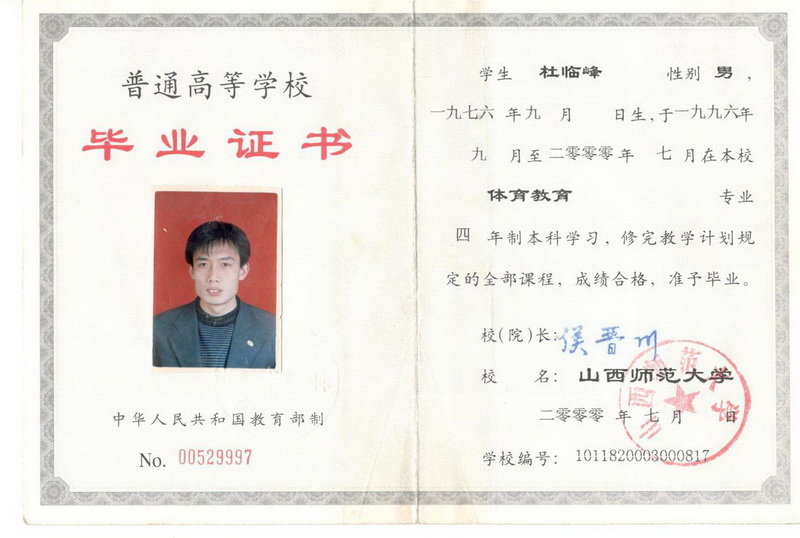 普通高等学校
毕业证书
中华人民共和国教育部制
No. 00529997
学生 杜临峰 性别 男，
一九七六 年九 月 日生，于一九九六年
九 月至二零零零年 七 月在本校
体育教育 专业
四 年制本科学习，修完教学计划规
定的全部课程，成绩合格，准予毕业。
校(院)长: 侯晋川
校 名: 山西师范大学
二零零零 年 七 月 日
学校编号: 1011820003000817
山西师范大学